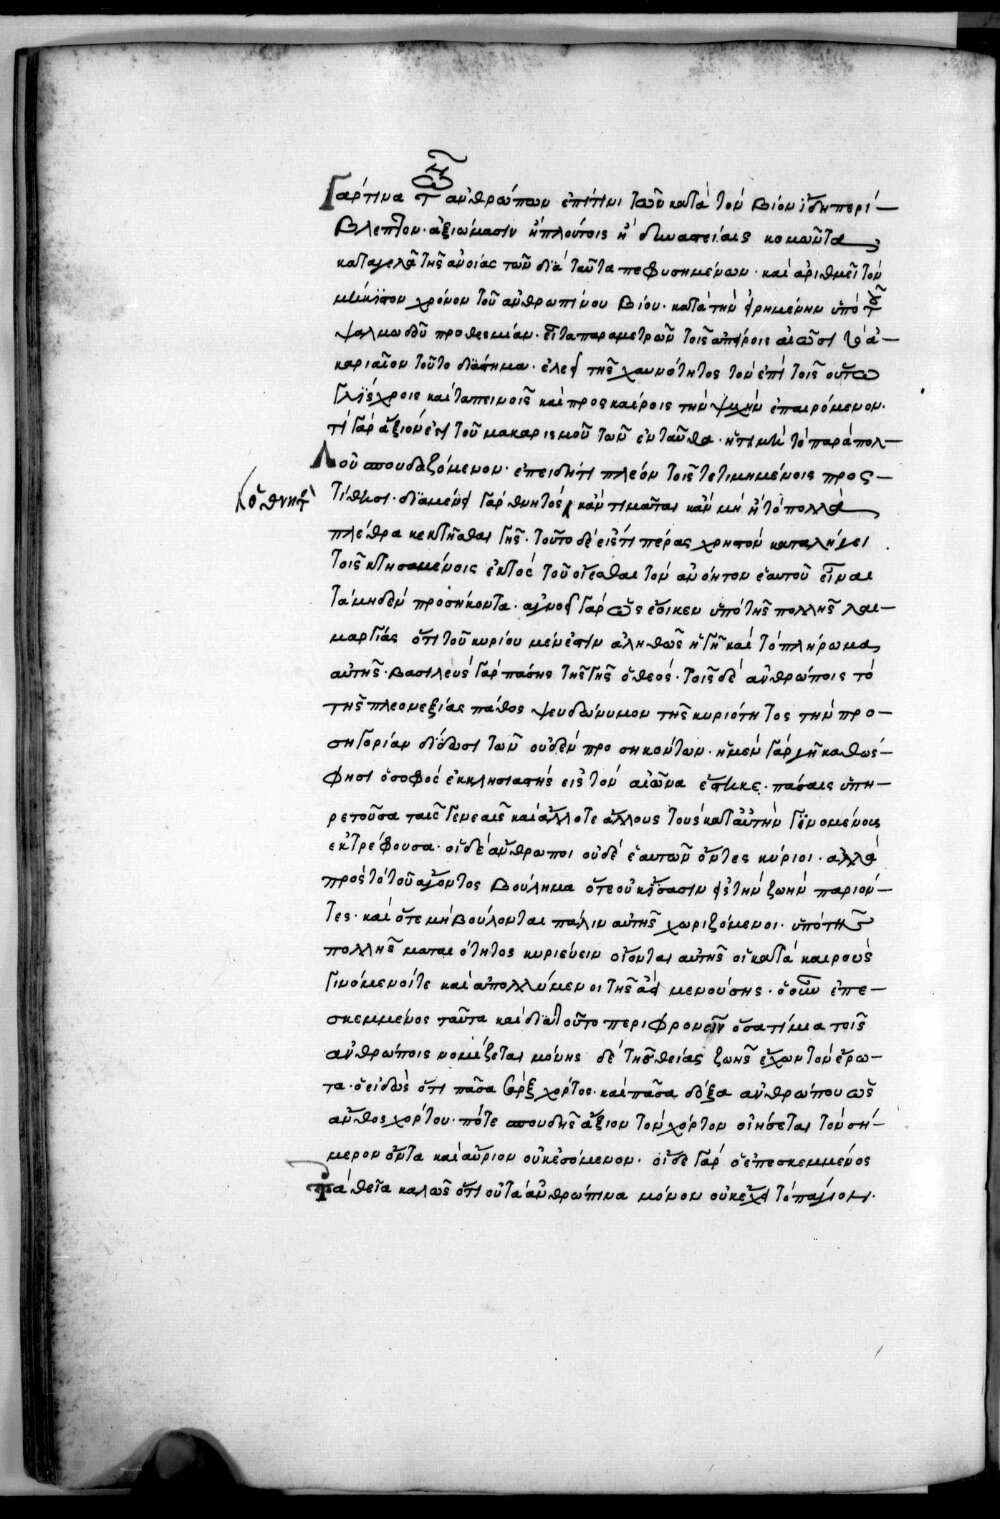 γάρ τινα τῶν ἀνθρώπων ἐπί τινι τῶν κατὰ τὸν βίον ἴδῃ περί–
βλεπτον· ἀξιώμασιν ἢ πλούτοις ἢ δυναστείαις κομῶντα
καταγελᾷ τῆς ἀνοίας τῶν διὰ ταῦτα πεφυσημένων· καὶ ἀριθμεῖ τὸν
μήκιστον χρόνον τοῦ ἀνθρωπίνου βίου· κατὰ τὴν εἰρημένην ὑπὸ τοῦ
ψαλμωδοῦ προθεσμίαν· εἶτα παραμετρῶν τοῖς ἀπείροις αἰῶσι τὸ ἀ–
καριαῖον τοῦτο διάστημα· ἐλεεῖ τῆς χαυνότητος τὸν ἐπὶ τοῖς οὕτω
γλίσχροις καὶ ταπεινοῖς καὶ προσκαίροις τὴν ψυχὴν ἐπαιρόμενον·
τί γὰρ ἄξιόν ἐστι τοῦ μακαρισμοῦ τῶν ἐνταῦθα· ἢ τιμὴ τὸ παρὰ πολ–
λοῦ σπουδαζόμενον· ἐπειδὴ τί πλέον τοῖς τετιμημένοις προσ–
τίθησι· διαμένει γὰρ θνητὸς κἂν τιμᾶται κἂν μή ἢ τὸ πολλὰ
ὁ θνητὸς
πλέθρα κεκτῆσθαι γῆς· τοῦτο δὲ εἰς τί πέρας χρηστὸν καταλήγει
τοῖς κτησαμένοις ἐκτὸς τοῦ οἴεσθαι τὸν ἀνόητον ἑαυτοῦ εἶναι
τὰ μηδὲν προσήκοντα· ἀγνοεῖ γὰρ ὡς ἔοικεν ὑπὸ τῆς πολλῆς λαι–
μαργίας ὅτι τοῦ κυρίου μέν ἐστιν ἀληθῶς ἡ γῆ καὶ τὸ πλήρωμα
αὐτῆς· βασιλεὺς γὰρ πάσης τῆς γῆς ὁ θεός· τοῖς δὲ ἀνθρώποις τὸ
τῆς πλεονεξίας πάθος ψευδώνυμον τῆς κυριότητος τὴν προ–
σηγορίαν δίδωσι τῶν οὐδὲν προσηκόντων· ἡ μὲν γὰρ γῆ καθώς–
φησι ὁ σοφὸς ἐκκλησιαστής εἰς τὸν αἰῶνα ἕστηκε· πάσαις ὑπη–
ρετοῦσα ταῖς γενεαῖς καὶ ἄλλοτε ἄλλους τοὺς κατ' αὐτὴν γινομένους
ἐκτρέφουσα· οἱ δὲ ἄνθρωποι οὐδὲ ἑαυτῶν ὄντες κύριοι· ἀλλὰ
πρὸς τὸ τοῦ ἄγοντος βούλημα ὅτε οὐκ ἴσασιν εἰς τὴν ζωὴν παριόν–
τες· καὶ ὅτε μὴ βούλονται πάλιν αὐτῆς χωριζόμενοι· ὑπὸ τῆς
πολλῆς ματαιότητος κυριεύειν οἴονται αὐτῆς οἱ κατὰ καιροὺς
γινόμενοί τε καὶ ἀπολλύμενοι τῆς ἀεὶ μενούσης· ὁ οὖν ἐπε–
σκεμμένος ταῦτα καὶ διὰ τοῦτο περιφρονεῖν ὅσα τίμια τοῖς
ἀνθρώποις νομίζεται μόνης δὲ τῆς θείας ζωῆς ἔχων τὸν ἔρω–
τα· ὁ εἰδὼς ὅτι πᾶσα σὰρξ χόρτος· καὶ πᾶσα δόξα ἀνθρώπου ὡς
ἄνθος χόρτου· πότε σπουδῆς ἄξιον τὸν χόρτον οἰήσεται τὸν σή–
μερον ὄντα καὶ αὔριον οὐκ ἐσόμενον· οἶδε γὰρ ὁ ἐπεσκεμμένος
τὰ θεῖα καλῶς ὅτι οὐ τὰ ἀνθρώπινα μόνον οὐκ ἔχει τὸ πάγιον·